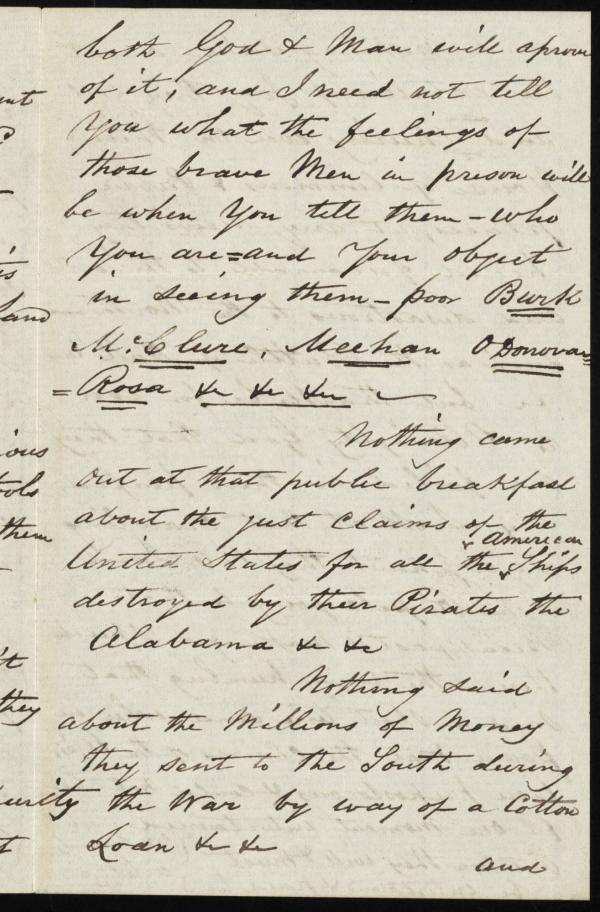 both God & Man will aprove
of it, and I need not tell
you what the feelings of
those brave Men in preson will
be when you tell them - who
You are = and Your object
in seeing them - poor Burk
McClure, Meehan O'Donovan
= Rosa &c &c &c
Nothing came
out at that public breakfast
about the just claims of the
American
United States for all the Ships
destroyed by their Pirates the
Alabama &c &c
Nothing said
about the Millions of Money
they sent to the South during
the War by way of a Cotton
Loan &c &c
and